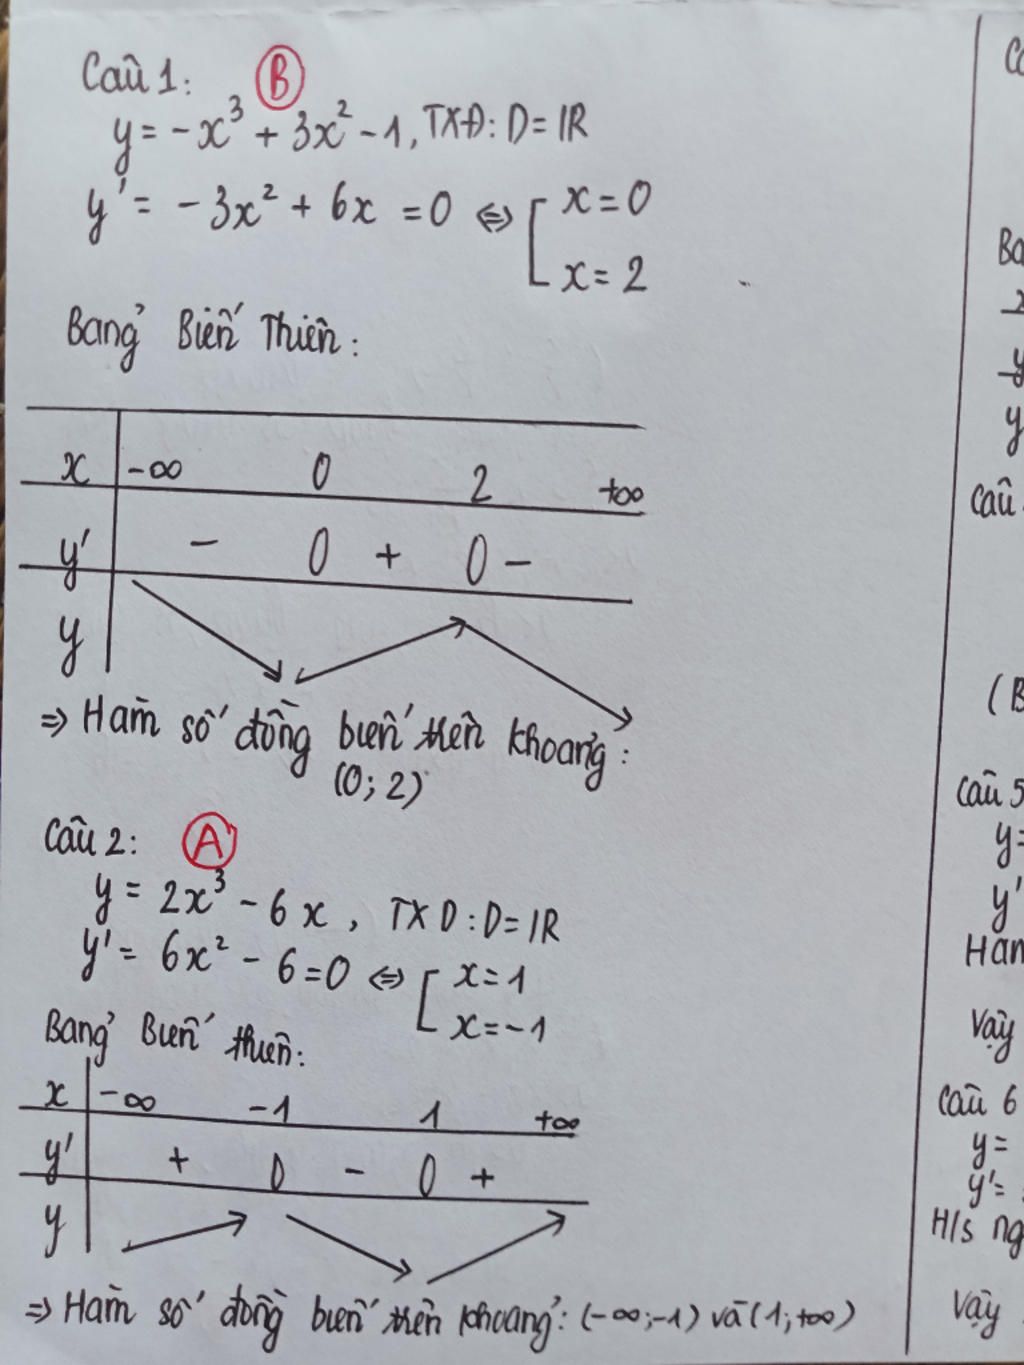 Câu 1: B
y = -x³ + 3x² - 1, TXĐ: D = ℝ
y' = -3x² + 6x = 0 ⇔ [ x = 0
x = 2
Bảng Biến Thiên:
x | -∞ 0 2 +∞
y' | - 0 + 0 -
y
⇒ Hàm số đồng biến trên khoảng:
(0; 2)
Câu 2: A
y = 2x³ - 6x, TXD: D = ℝ
y' = 6x² - 6 = 0 ⇔ [ x = 1
x = -1
Bảng Biến thiên:
x | -∞ -1 1 +∞
y' | + 0 - 0 +
y
⇒ Hàm số đồng biến trên khoảng: (-∞;-1) và (1;+∞)
y
Câu
(B
Câu 5
y =
y'
Hàm
Vậy
Câu 6
y =
y' =
H/s ng
Vậy